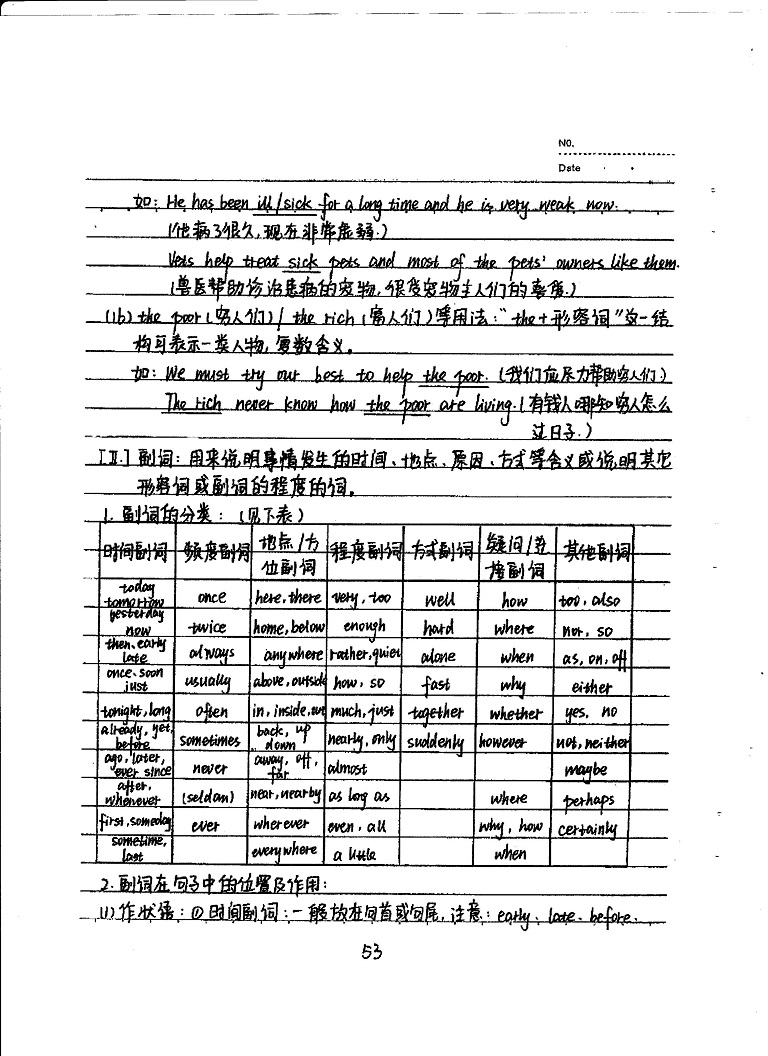 NO.
Date
如: He has been ill/sick for a long time and he is very weak now.
(他病了很久,现在非常虚弱.)
Vets help treat sick pets and most of the pets' owners like them.
(兽医帮助诊治患病的宠物,很受宠物主人们的喜爱.)
(16) the poor (穷人们) / the rich (富人们) 等用法: "the+形容词"这一结
构可表示一类人物,复数含义。
如: We must try our best to help the poor. (我们应尽力帮助穷人们)
The rich never know how the poor are living. (有钱人哪知穷人怎么
过日子.)
[Ⅱ.] 副词: 用来说明事情发生的时间、地点、原因、方式等含义或说明其它
形容词或副词的程度的词。
1. 副词的分类: (见下表)
时间副词 频度副词 地点/方位副词 程度副词 方式副词 疑问/连接副词 其他副词
today tomorrow once here, there very, too well how too, also
yesterday now twice home, below enough hard where nor, so
then, early late always anywhere rather, quiet alone when as, on, off
once, soon just usually above, outside how, so fast why either
tonight, long often in, inside, out much, just together whether yes, no
already, yet, before sometimes back, up down nearly, only suddenly however not, neither
ago, later, ever since never away, off, far almost maybe
after, whenever (seldom) near, nearby as long as where perhaps
first, someday ever wherever even, all why, how certainly
sometime, last everywhere a little when
2. 副词在句子中的位置及作用:
(1) 作状语: ① 时间副词: 一般放在句首或句尾, 注意: early、late、before、
53